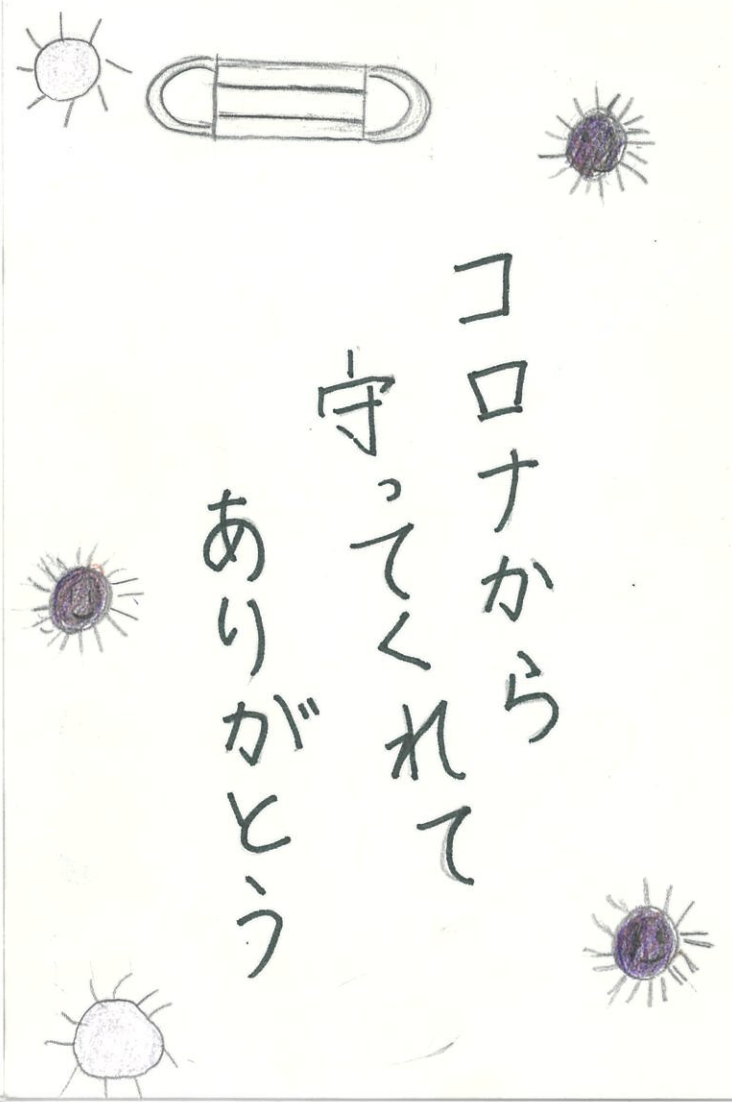 コロナから
守ってくれて
ありがとう